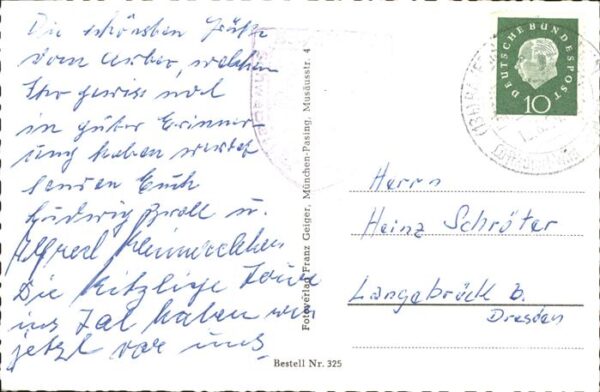 Die schönsten Grüße
vom Arber, welchen
Ihr gewiss noch
in guter Erinner-
ung haben werdet
senden Euch
Ludwig Zroll u.
Alfred
Die kitzlige Tour
ins Tal haben wir
jetzt vor uns.
Fotoverlag Franz Geiger, München-Pasing, Musäusstr. 4
Bestell Nr. 325
DEUTSCHE BUNDESPOST
10
Herrn
Heinz Schröter
Langebrück b.
Dresden